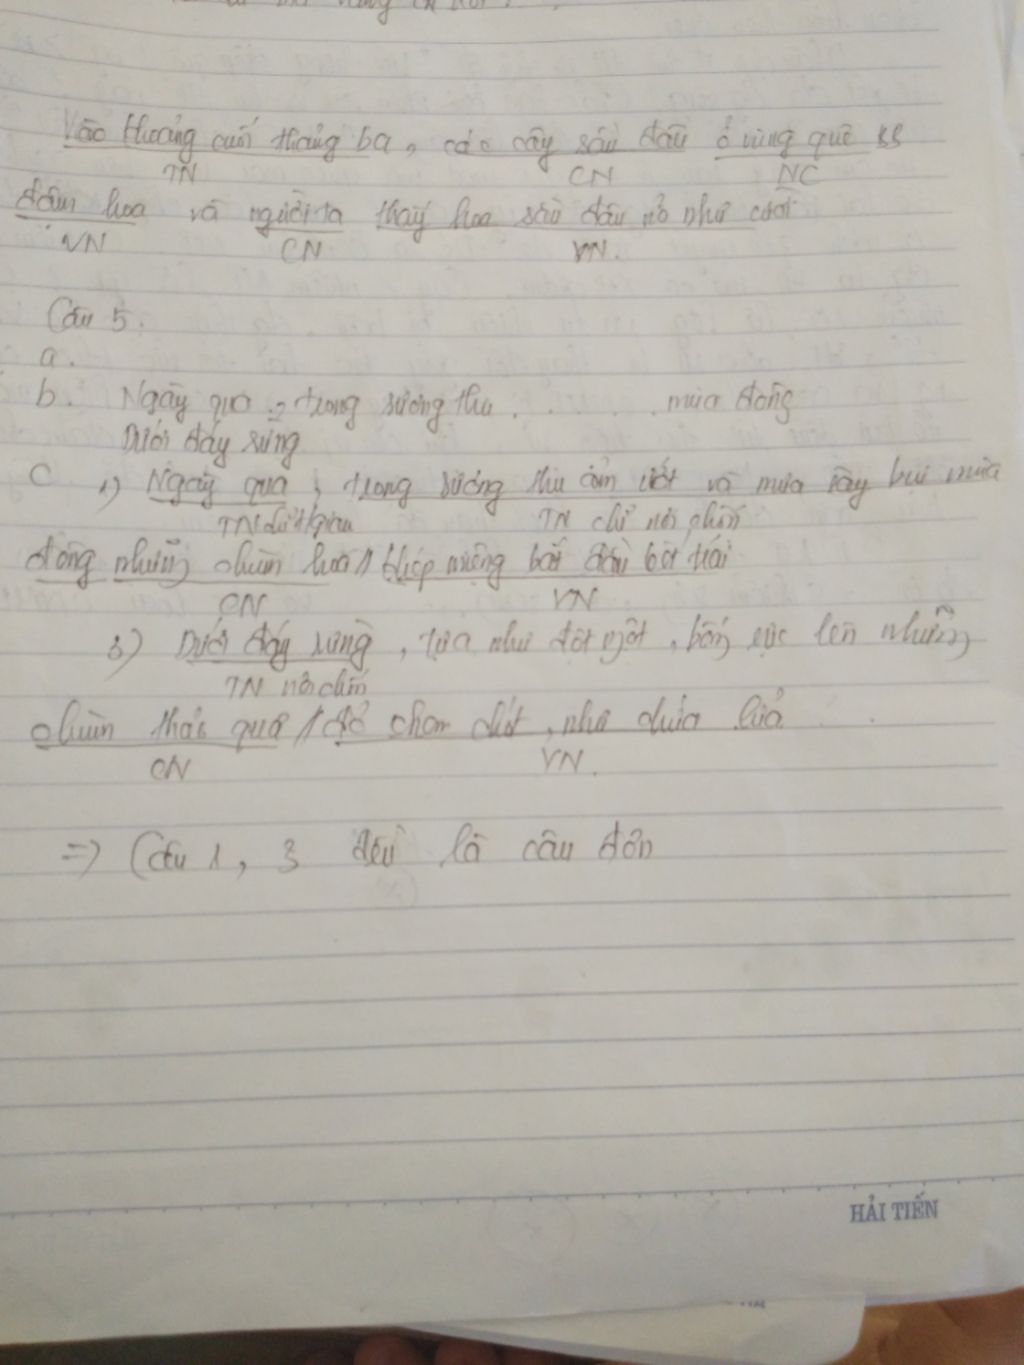 Vào khoảng cuối tháng ba, các cây sầu đâu ở vùng quê
TN CN NC
đâm hoa và người ta thấy hoa sầu đâu nở như cười
VN CN VN.
Câu 5.
a.
b. Ngày qua, trong sương thu . . . . . mùa đông
Dưới đáy rừng
C 1) Ngày qua, trong sương thu ẩm ướt và mưa rây bụi mùa
TN chỉ TN chỉ nơi chốn
đông những chùm hoa // khép miệng bắt đầu kết trái
CN VN
3) Dưới đáy rừng, tựa như đột ngột, bỗng rực lên những
TN nơi chốn
chùm thảo quả // đỏ chon chót, như chứa lửa
CN VN.
=> Câu 1, 3 đều là câu đơn
HẢI TIẾN